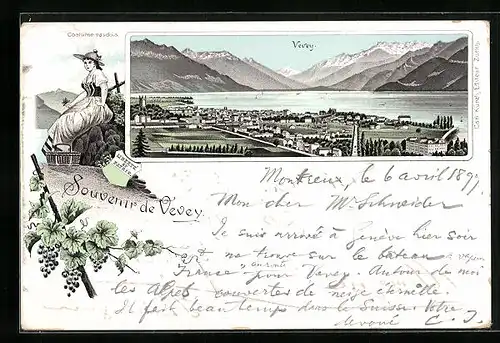 Costume vaudois
Vevey.
Carl Künzli, Editeur - Zurich.
Souvenir de Vevey.
Montreux, le 6 avril 189
Mon cher Mr Schneider
Je suis arrivé à Genève hier soir
et me trouve sur le bateau à vapeur
France pour Vevey. Autour de moi
les Alpes couvertes de neige éternelle.
Il fait beau temps dans la Suisse. Votre
dévoué C. J.